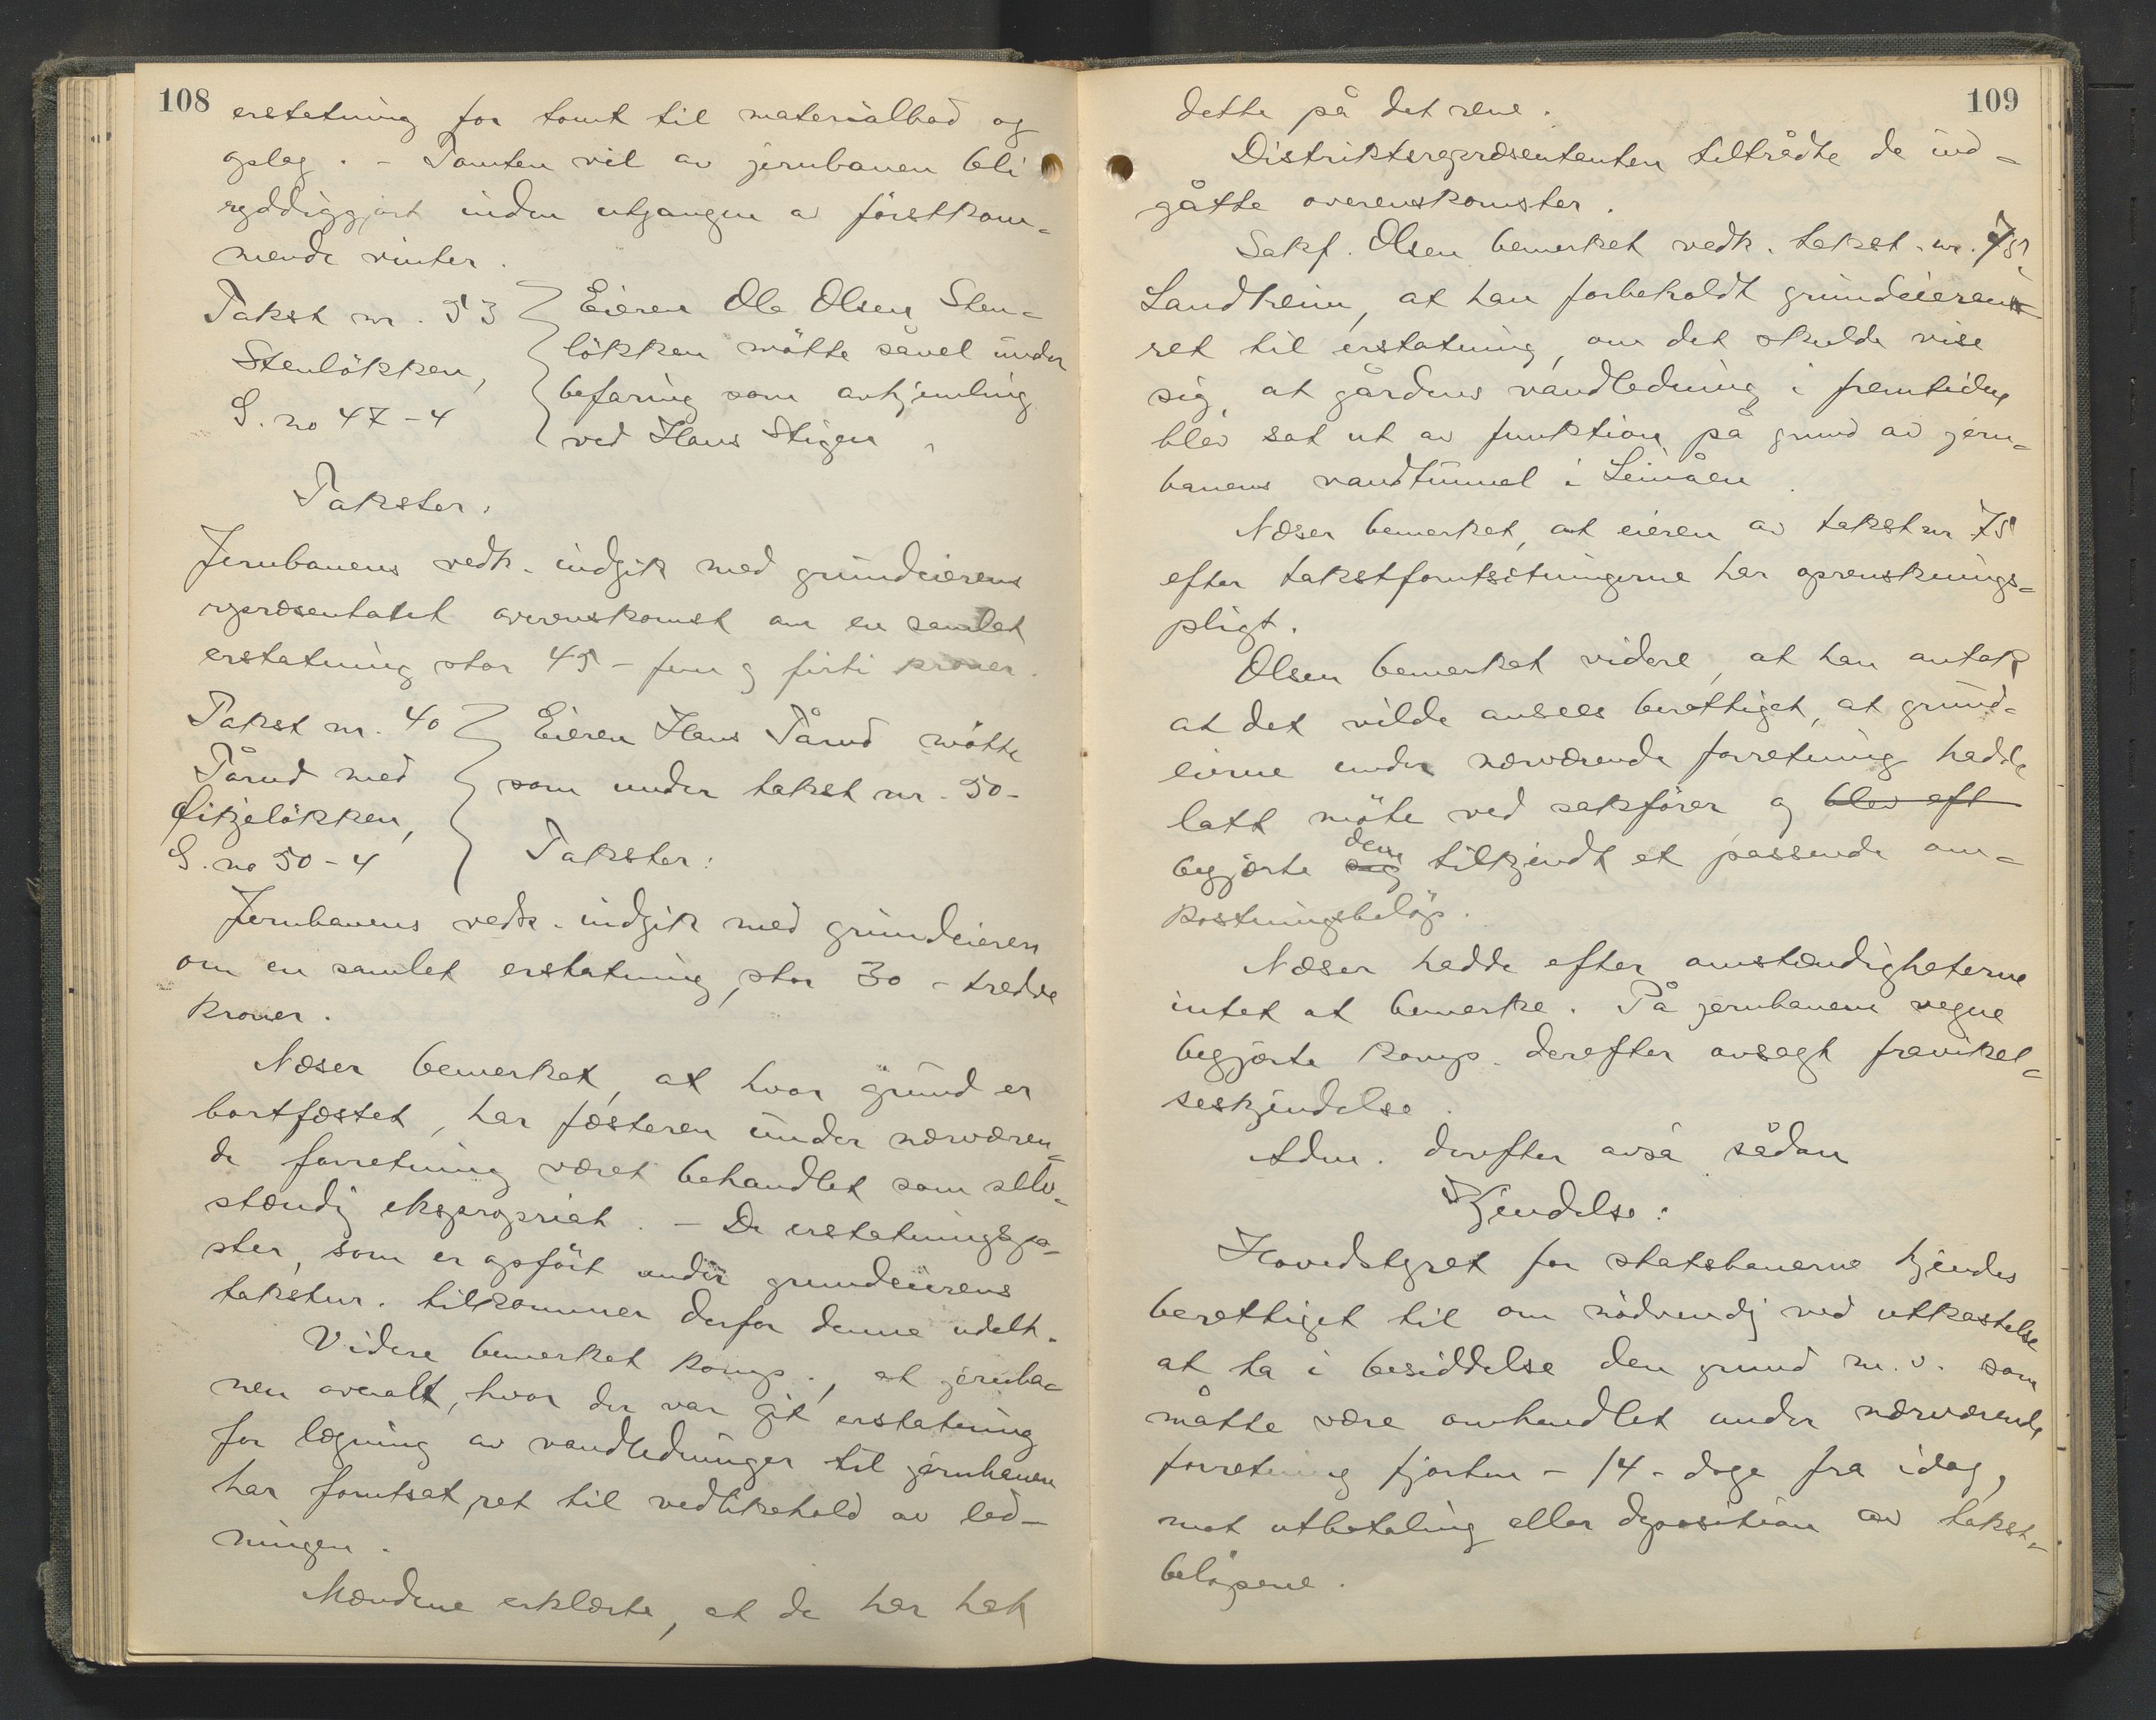 108
erstatning for tomt til materialbod og
oplag. - Tomten vil av jernbanen bli
ryddiggjort inden utgangen av förstkom-
mende vinter.
Takst nr. 53
Stenlökken,
G. no 47-4
Eieren Ole Olsen Sten-
lökken mötte såvel under
befaring som avhjemling
ved Hans Stigen.
Takster.
Jernbanens vedk. indgik med grundeierens
repræsentatet overenskomst om en samlet
erstatning stor 45 - fem og firti kroner.
Takst nr. 40
Tårud med
Fitjelökken,
G. no 50-4
Eieren Hans Tårud mötte
som under takst nr. 50-
Takster:
Jernbanens vedk. indgik med grundeieren
om en samlet erstatning, stor 30 - tredve
kroner.
Næser bemerket, at hvor grund er
bortfæstet, har fæsteren under nærværen-
de forretning været behandlet som selv-
stændig ekspropriat. - De erstatningspo-
ster, som er opfört under grundeierens
takstnr. tilkommer derfor denne udelt.
Videre bemerket komp., at jernba-
nen overalt, hvor der var git erstatning
for lægning av vandledninger til jernbanen
har forutsat ret til vedlikehold av led-
ningen.
Mændene erklærte, at de har hat
109
dette på det rene.
Distriktsrepræsentanten tiltrådte de ind-
gåtte overenskomster.
Sakf. Olsen bemerket vedk. takst nr. 75,
Landheim, at han forbeholdt grundeieren
ret til erstatning, om det skulde vise
sig, at gårdens vandledning i fremtiden
blev sat ut av funktion på grund av jern-
banens vandtunnel i Leinåen.
Næser bemerket, at eieren av takst nr 75
efter takstforutsetningerne har oprensknings-
pligt.
Olsen bemerket videre, at han antok
at det vilde ansees berettiget, at grund-
eierne under nærværende forretning hadde
latt möte ved sakförer og blev eft
begjærte sig dem tilkjendt et passende om-
kostningsbelöp.
Næser hadde efter omstændigheterne
intet at bemerke. På jernbanens vegne
begjærte komp. derefter avsagt fravikel-
seskjendelse.
Adm. derefter avsa sådan
Kjendelse:
Hovedstyret for statsbanerne kjendes
berettiget til om nödvendig ved utkastelse
at ta i besiddelse den grund m.v. som
måtte være omhandlet under nærværende
forretning fjorten - 14 - dage fra idag,
mot utbetaling eller deposition av takst-
belöpene.